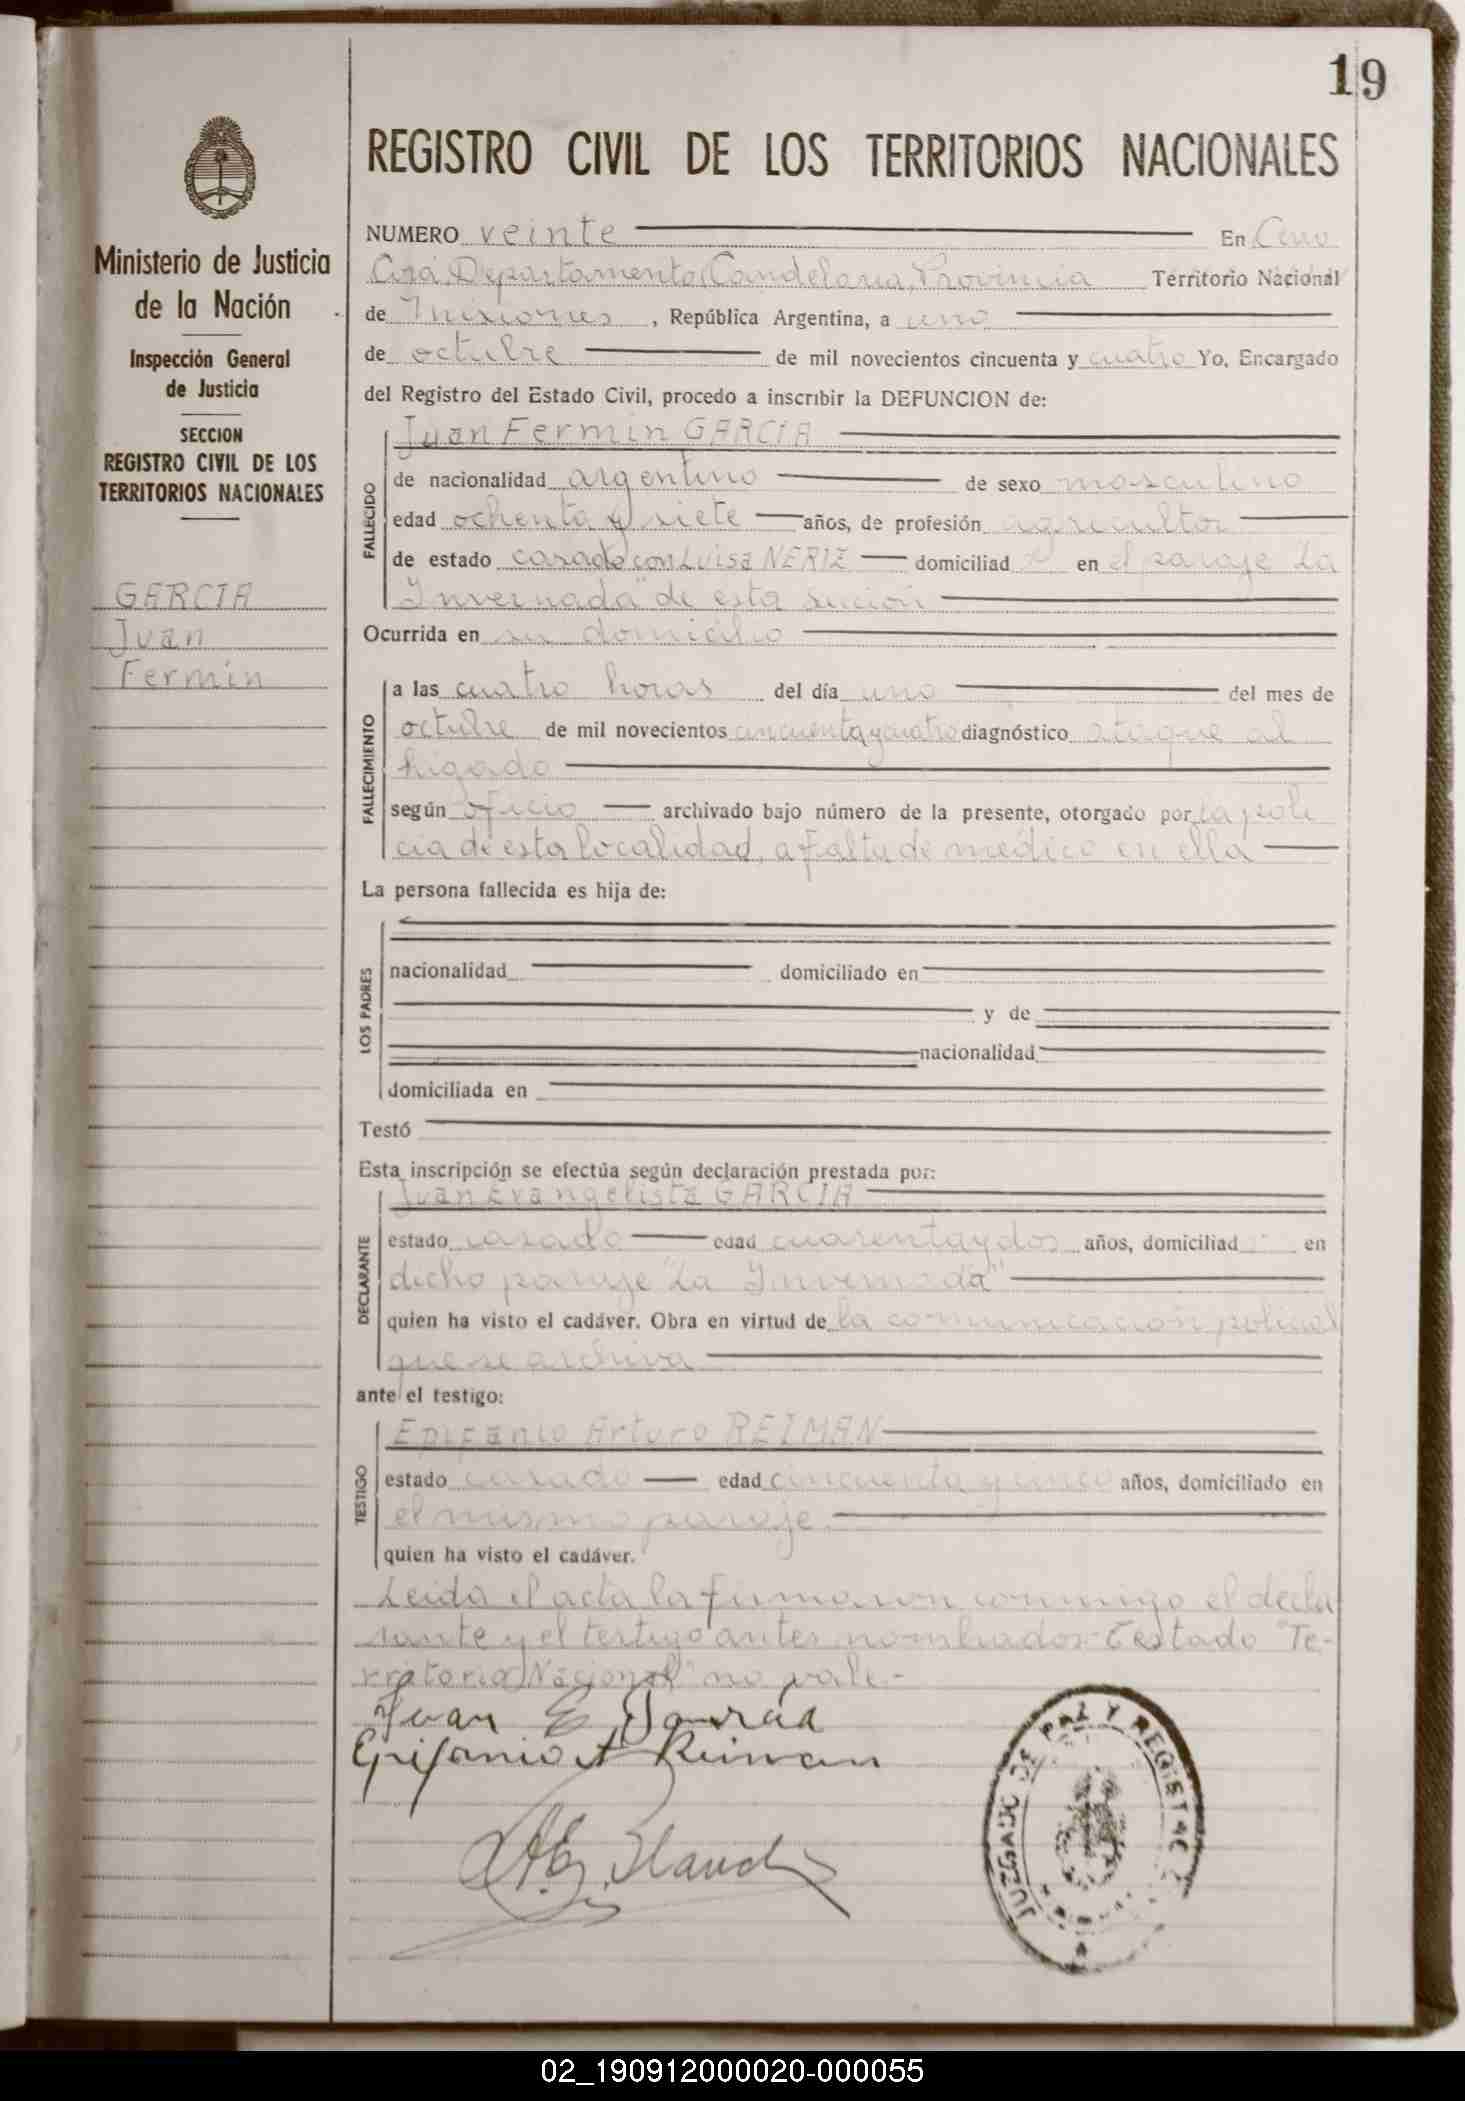 19
REGISTRO CIVIL DE LOS TERRITORIOS NACIONALES
Ministerio de Justicia
de la Nación
Inspección General
de Justicia
SECCION
REGISTRO CIVIL DE LOS
TERRITORIOS NACIONALES
GARCIA
Juan
Fermín
NUMERO veinte En Cerro
Corá, Departamento Candelaria, Provincia Territorio Nacional
de Misiones, República Argentina, a uno
de octubre de mil novecientos cincuenta y cuatro Yo, Encargado
del Registro del Estado Civil, procedo a inscribir la DEFUNCION de:
FALLECIDO
Juan Fermín GARCIA
de nacionalidad argentino de sexo masculino
edad ochenta y siete años, de profesión agricultor
de estado casado con Luisa NERIZ domiciliado en el paraje "La
Invernada" de esta sección
Ocurrida en su domicilio
FALLECIMIENTO
a las cuatro horas del día uno del mes de
octubre de mil novecientos cincuenta y cuatro diagnóstico ataque al
hígado
según oficio archivado bajo número de la presente, otorgado por la poli
cía de esta localidad, a falta de médico en ella
La persona fallecida es hija de:
LOS PADRES
nacionalidad domiciliado en
y de
nacionalidad
domiciliada en
Testó
Esta inscripción se efectúa según declaración prestada por:
DECLARANTE
Juan Evangelista GARCIA
estado casado edad cuarenta y dos años, domiciliad en
dicho paraje "La Invernada"
quien ha visto el cadáver. Obra en virtud de la comunicación policial
que se archiva
ante el testigo:
TESTIGO
Epifanio Arturo REIMAN
estado casado edad cincuenta y cinco años, domiciliado en
el mismo paraje
quien ha visto el cadáver.
Leída el acta la firmaron conmigo el decla
rante y el testigo antes nombrados. Testado "Te-
rritorio Nacional" no vale.-
Juan E García
Epifanio A Reiman
JUZGADO DE PAZ Y REGISTRO
02_190912000020-000055